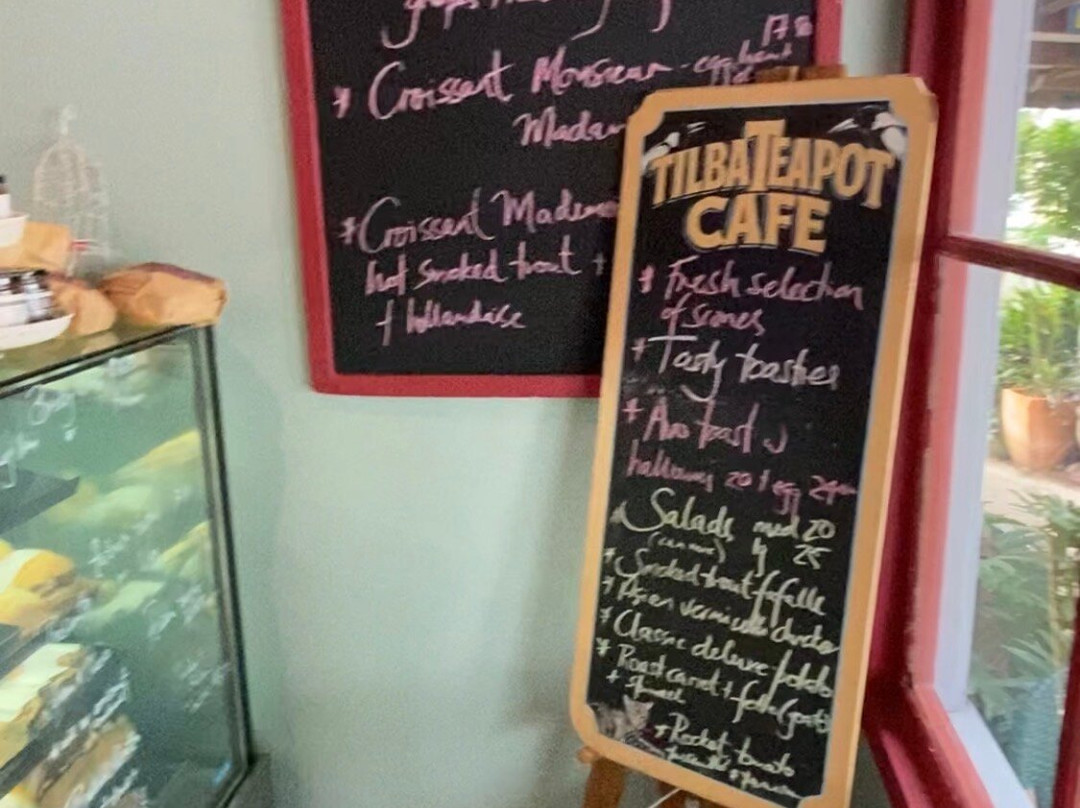 * Croissant Monsieur -
Madam
* Croissant Madem
hot smoked trout +
+ hollandaise
TILBA TEAPOT
CAFE
* Fresh selection
of scones
* Tasty toasties
* Avo toast
halloumi 20 / egg
* Salads med 20
lg 25
* Smoked trout farfalle
* Asian vermicelli
* Classic deluxe potato
* Roast carrot +
+ spinach
* Rocket tomato